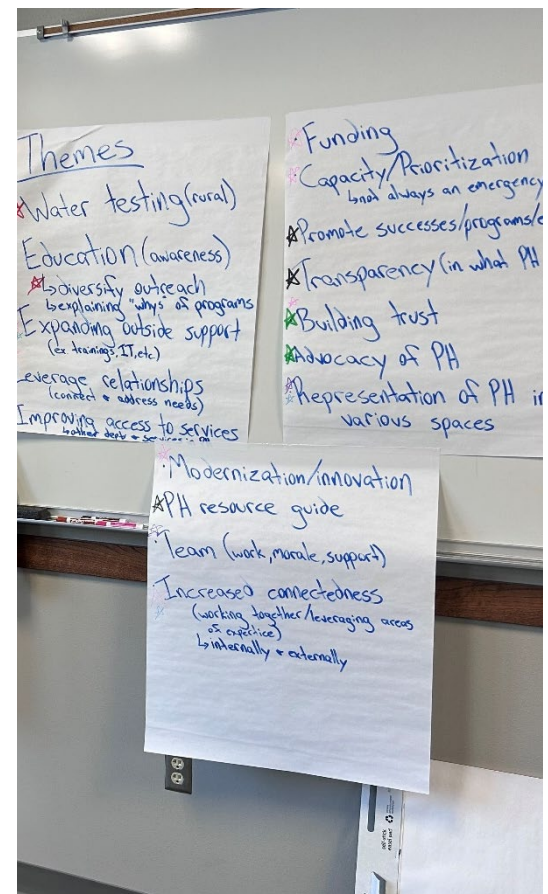 Themes
Water testing (rural)
Education (awareness)
↳ diversify outreach
↳ explaining "whys" of programs
Expanding outside support
(ex. trainings, IT, etc.)
Leverage relationships
(connect + address needs)
Improving access to services
↳ other dept +
• Funding
• Capacity/Prioritization
↳ not always an emergency
Promote successes/programs/
Transparency (in what PH
Building trust
Advocacy of PH
Representation of PH in
various spaces
• Modernization/innovation
PH resource guide
• Team (work, morale, support)
Increased connectedness
(working together/leveraging areas
of expertice)
↳ internally + externally